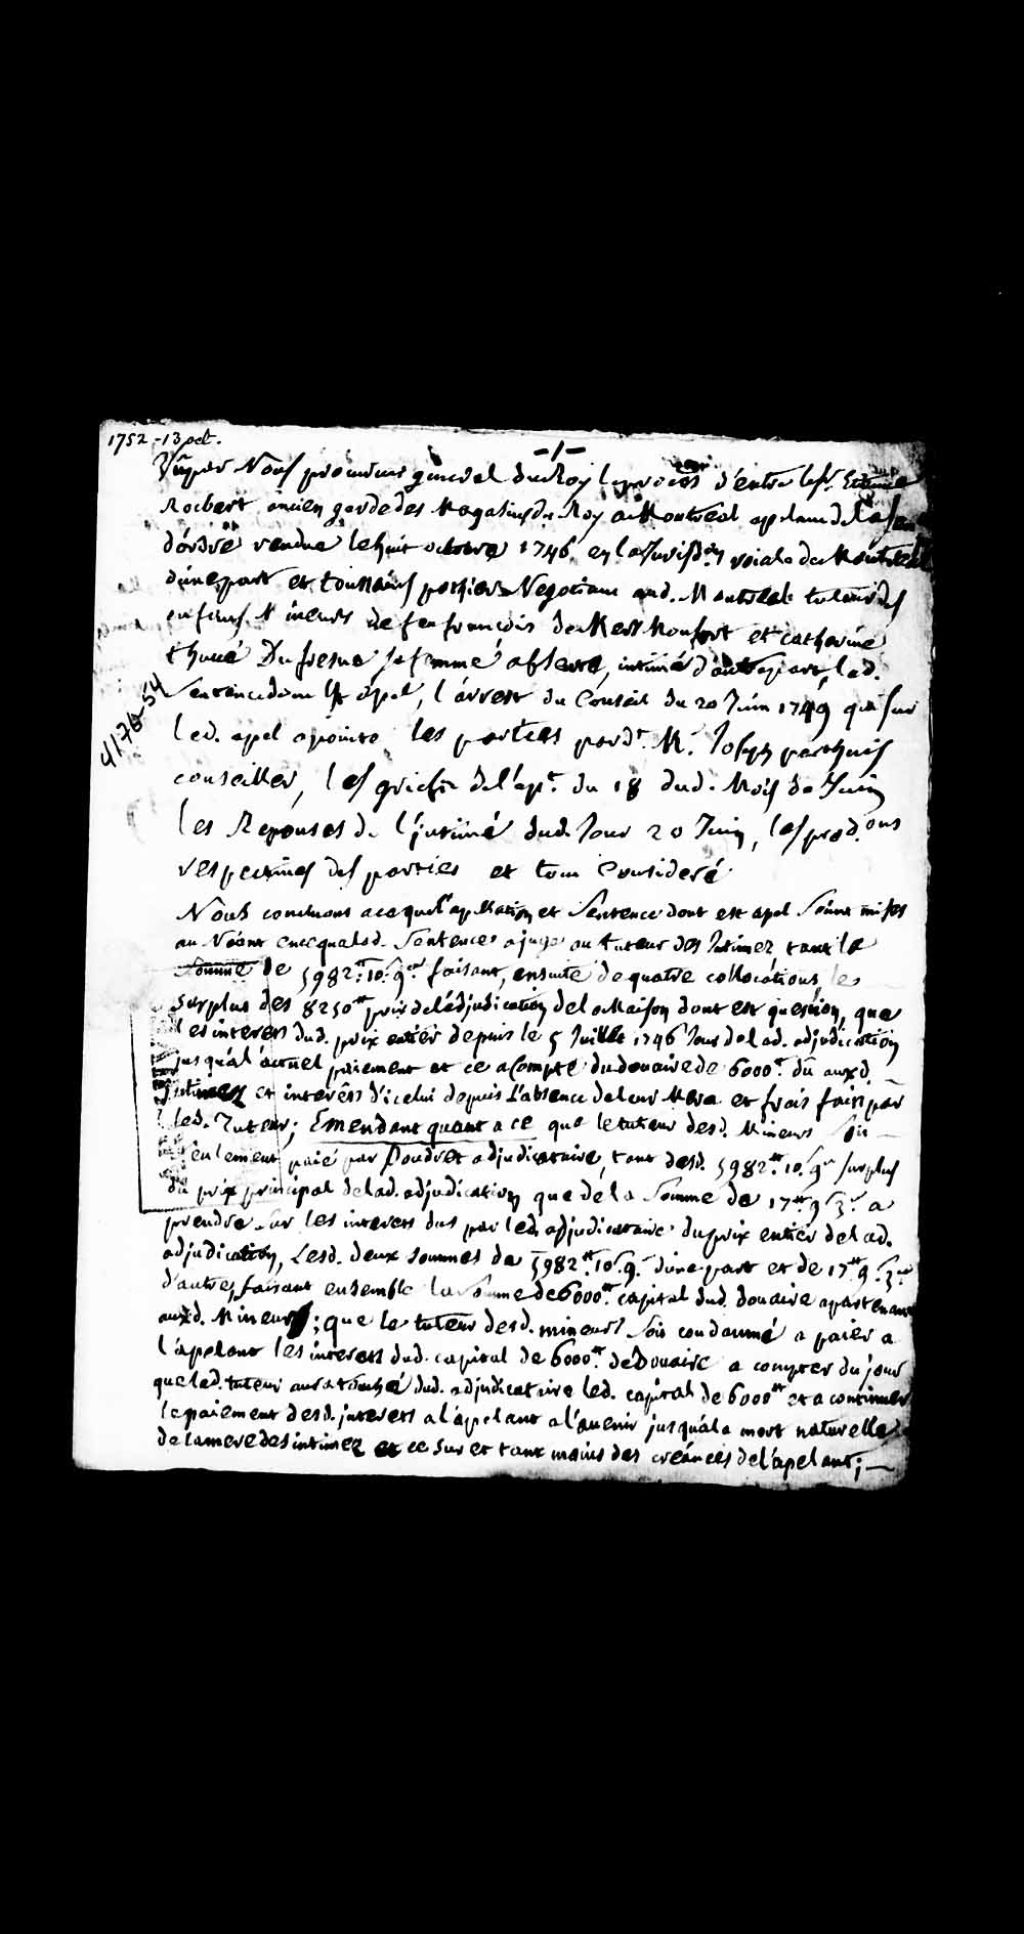 1752 - 13 oct.
-1-
Vû par Nous procureur general du Roy le procés d'entre le sr. Etienne
Rocbert ancien garde des Magasins du Roy a Montreal apelant de la
d'ordre rendue le huit octobre 1746 en la Jurisdon roiale de Montreal
d'une part et toussaint potier Negotiant aud. Montreal tuteur des
enfans Mineurs de feu françois de Monfort et catherine
thuné Dufresne sa femme absente, intimé d'autre part, lad.
Sentence dont est apel, l'arrest du Conseil du 20 Juin 1749 qui sur
led. apel apointe les parties pardt. M.
conseiller, les griefs de l'apt. du 18 dud. Mois de Juin
les Reponses de l'intimé dud. Jour 20 Juin, les prod.ons
respectives des parties et tout Consideré
Nous concluons a ce que l'apellation et Sentence dont est apel Soient mises
au Néant en ce que lad. Sentence a jugé au tuteur des Intimez tant la
Somme de 5982.tt 10.s 9.d faisant, ensuite de quatre collocations, les
surplus des 8250tt prix de l'adjudication de la Maison dont est question, que
les interets dud. prix entier depuis le 5 Juillet 1746 Jour de lad. adjudication
jusqu'à l'actuel paiement et ce a Compte du douaire de 6000.tt dû auxd.
Intimez et interêts d'icelui depuis l'absence de leur Mere et frais faits par
led. Tuteur; Emendant quant a ce que le tuteur desd. Mineurs Soit
Seulement paié par Poudret adjudicataire, tant desd. 5982.tt 10.s 9.d surplus
du prix principal de lad. adjudication que de la Somme de 17tt 9s 3.d a
prendre sur les interets dus par led. adjudicataire du prix entier de lad.
adjudication, Lesd. deux sommes de 5982.tt 10.s 9.d d'une part et de 17tt 9.s 3.d
d'autre, faisant ensemble la Somme de 6000.tt capital dud. douaire apartenant
auxd. Mineurs; que le tuteur desd. mineurs Soit condamné a paier a
l'apelant les interets dud. capital de 6000.tt de Douaire a compter du jour
que led. tuteur aura touché dud. adjudicataire led. capital de 6000tt et a continuer
le paiement desd. interets a l'apelant a l'avenir jusqu'à la mort naturelle
de la mere des intimez et ce sur et tant moins des créances de l'apelant; —